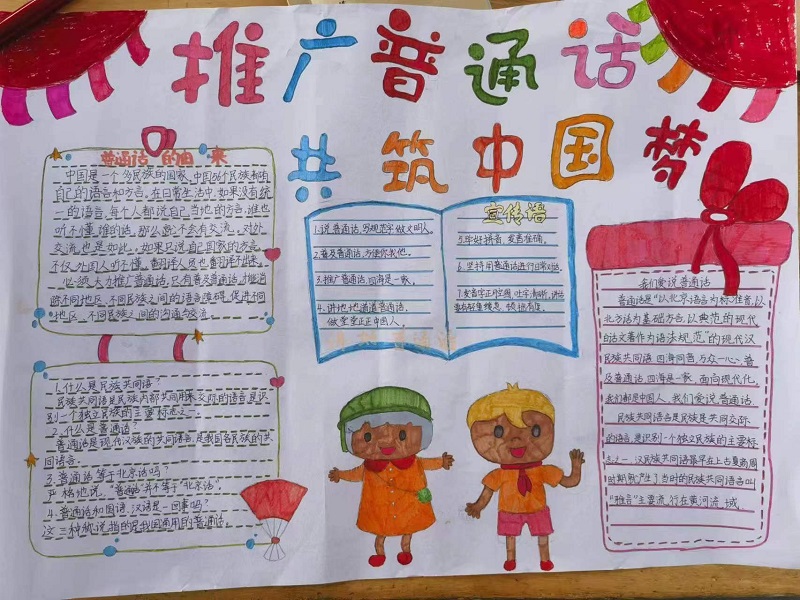 推广普通话
共筑中国梦
普通话的由来
中国是一个多民族的国家,中国56个民族都有
自己的语言和方言,在日常生活中,如果没有统
一的语言,每个人都说自己当地的方言,谁也
听不懂谁的话,那么就不会有交流,对外
交流也是如此,如果只说自己国家的方言,
不仅外国人听不懂,翻译人员也翻译不出来。
必须大力推广普通话,只有普及普通话,才能消
除不同地区、不同民族之间的语言障碍,促进不同
地区、不同民族之间的沟通与交流。
1.什么是民族共同语?
民族共同语是民族内部共同用来交际的语言,是识
别一个独立民族的主要标志之一。
2.什么是普通话?
普通话是现代汉族的共同语言,是我国各民族的共
同语言。
3.普通话等于北京话吗?
严格地说,“普通话”并不等于“北京话”。
4.普通话和国语、汉语是一回事吗?
这三种都该指的是我国通用的普通话。
宣传语
1.说普通话,写规范字,做文明人。
2.普及普通话,方便你我他。
3.推广普通话,四海是一家。
4.讲地地道道普通话,
做堂堂正正中国人。
5.学好拼音,发音准确。
6.坚持用普通话进行日常对话。
7.发音字正腔圆,吐字清晰,讲话
我们爱说普通话
普通话是“以北京语言为标准音,以
北方话为基础方言,以典范的现代
白话文著作为语法规范”的现代汉
民族共同语,四海同音,万众一心,普
及普通话,四海是一家,面向现代化,
我们都是中国人,我们爱说普通话。
民族共同语言是民族是共同交际
的语言,是识别一个独立民族的主要标
志之一,汉民族共同语最早在上古夏商周
时期就产生了当时的民族共同语言叫
“雅言”主要流行在黄河流域。